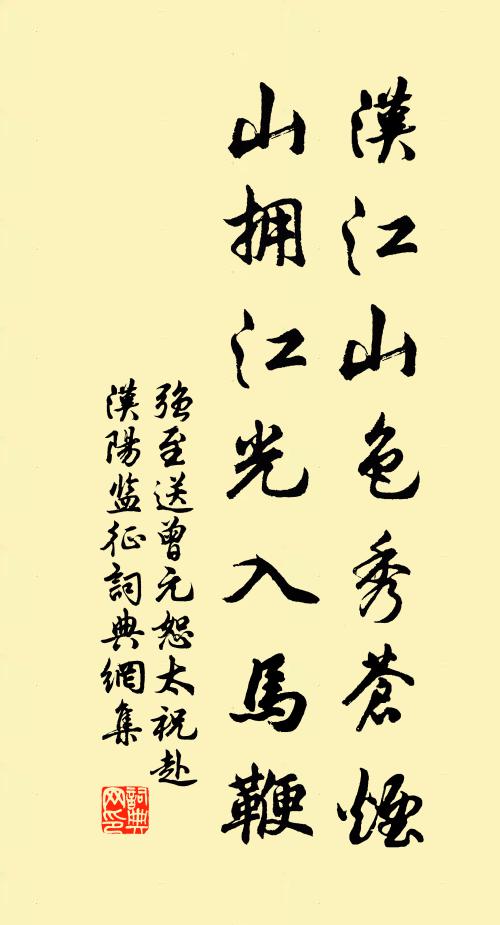 漢江山色秀蒼煙
山拥江光入馬鞭
強至送曾元恕太祝赴
漢陽監征詞典網集
詞典
网印